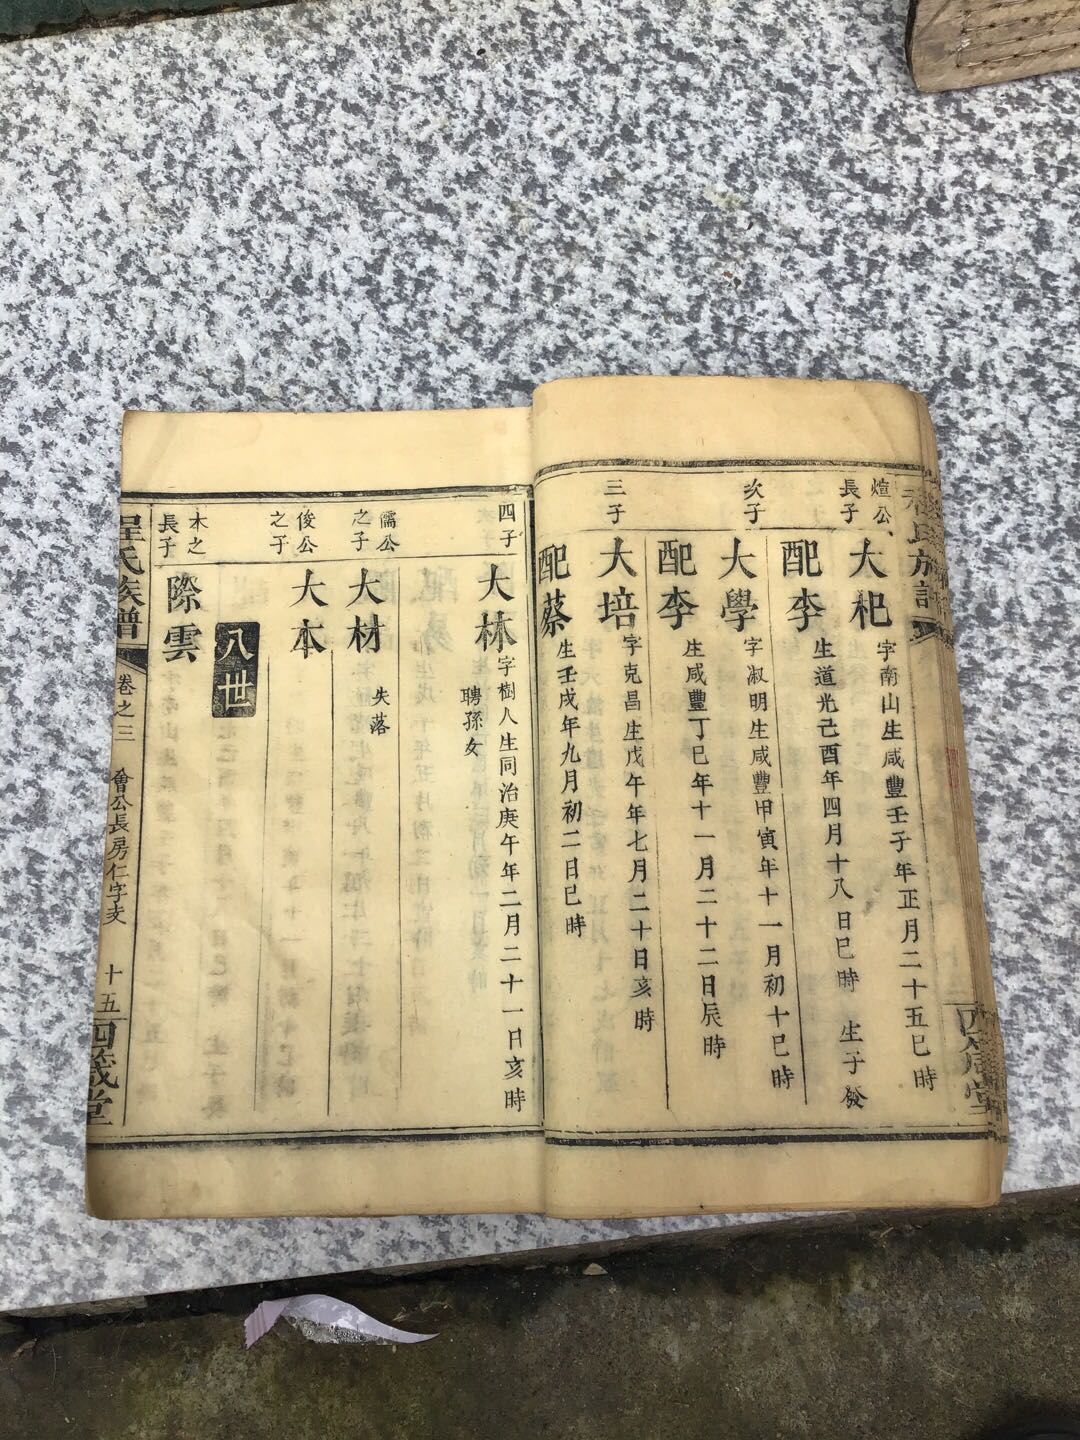 煊公
長子
大杞
字南山生咸豐壬子年正月二十五巳時
配李
生道光己酉年四月十八日巳時 生子發
次子
大學
字淑明生咸豐甲寅年十一月初十巳時
配李
生咸豐丁巳年十一月二十二日辰時
三子
大培
字克昌生戊午年七月二十日亥時
配蔡
生壬戌年九月初二日巳時
四子
大林
字樹人生同治庚午年二月二十一日亥時
聘孫女
儒公
之子
大材
失落
俊公
之子
大本
八世
木之
長子
際雲
程氏族譜
卷之三
會公長房仁字支
十五
四箴堂